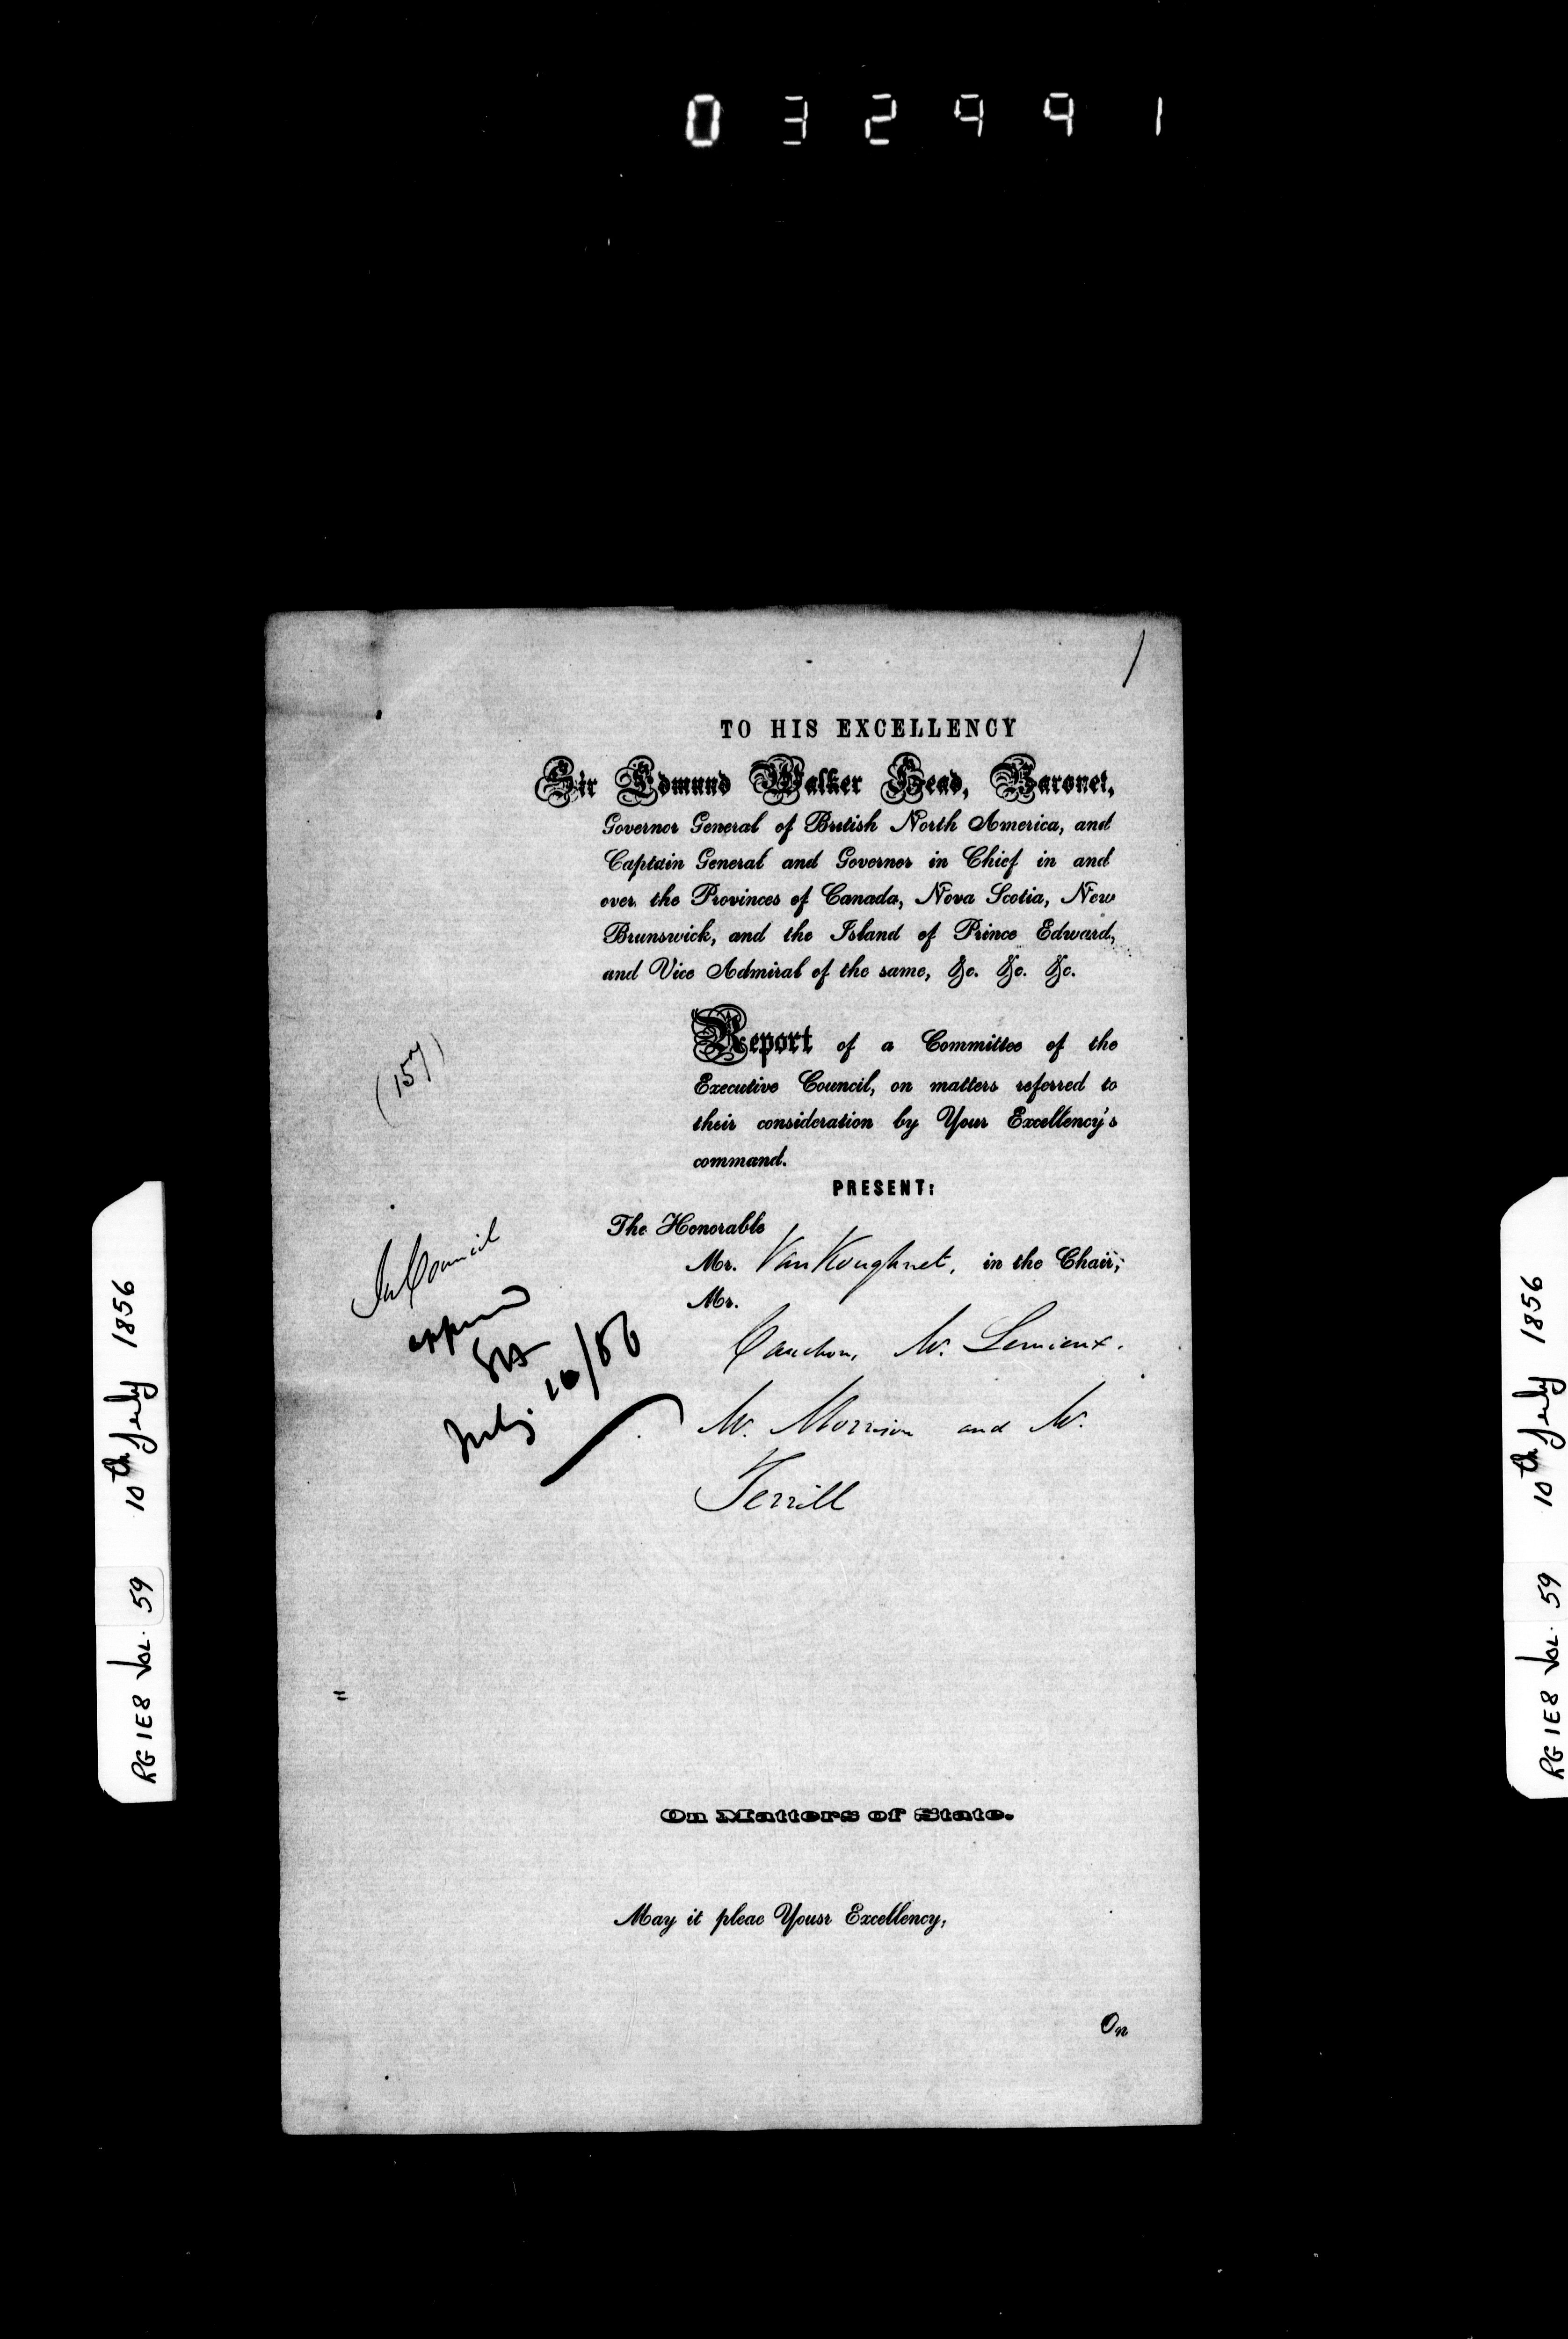 032991
/
TO HIS EXCELLENCY
Sir Edmund Walker Head, Baronet,
Governor General of British North America, and
Captain General and Governor in Chief in and
over the Provinces of Canada, Nova Scotia, New
Brunswick, and the Island of Prince Edward,
and Vice Admiral of the same, &c. &c. &c.
Report of a Committee of the
Executive Council, on matters referred to
their consideration by Your Excellency's
command.
(157)
PRESENT:
The Honorable
Mr. VanKoughnet, in the Chair,
Mr.
Cauchon, Mr. Lemieux.
Mr. Morrison and Mr.
Terrill
In Council
approved
July 10/56
On Matters of State.
May it pleae Yousr Excellency,
On
RG 1E8 Vol. 59 10th July 1856
RG 1E8 Vol. 59 10th July 1856